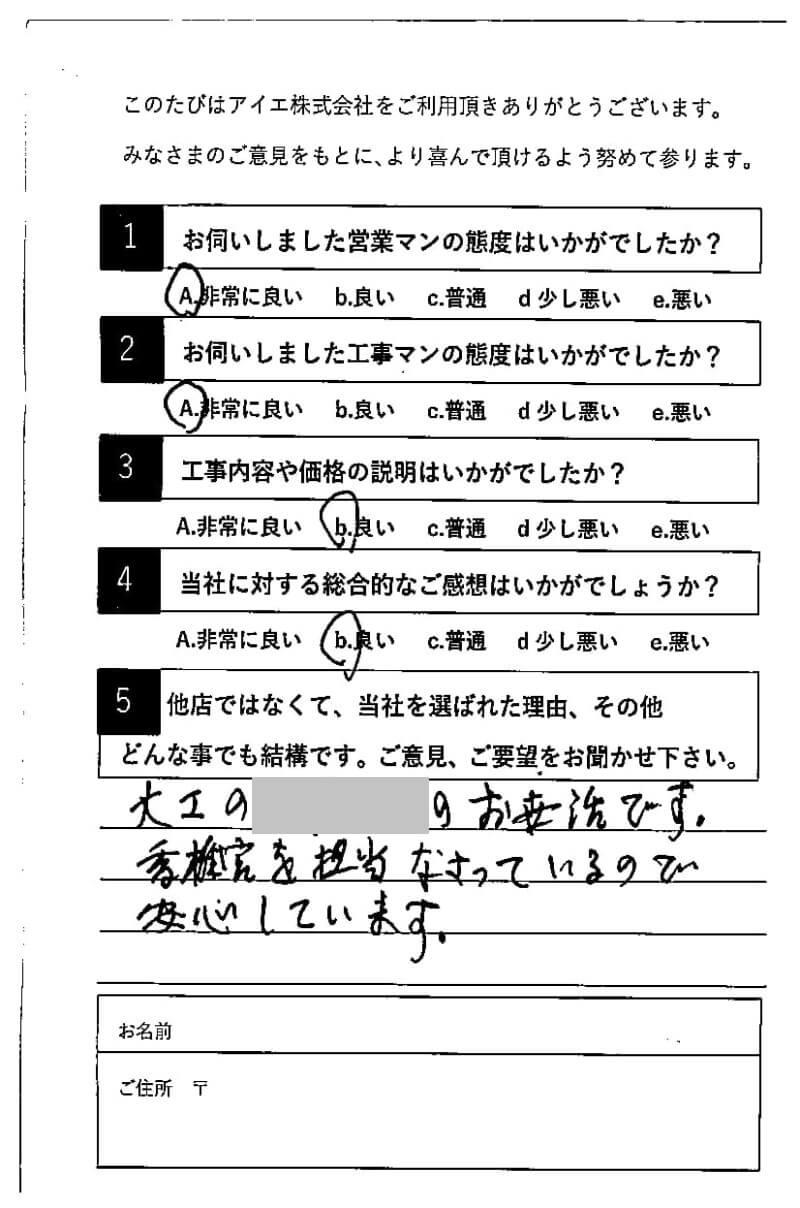 このたびはアイエ株式会社をご利用頂きありがとうございます。
みなさまのご意見をもとに、より喜んで頂けるよう努めて参ります。
1 お伺いしました営業マンの態度はいかがでしたか？
A.非常に良い b.良い c.普通 d 少し悪い e.悪い
2 お伺いしました工事マンの態度はいかがでしたか？
A.非常に良い b.良い c.普通 d 少し悪い e.悪い
3 工事内容や価格の説明はいかがでしたか？
A.非常に良い b.良い c.普通 d 少し悪い e.悪い
4 当社に対する総合的なご感想はいかがでしょうか？
A.非常に良い b.良い c.普通 d 少し悪い e.悪い
5 他店ではなくて、当社を選ばれた理由、その他
どんな事でも結構です。ご意見、ご要望をお聞かせ下さい。
大工の の お世話です。
香椎宮を担当なさっているので
安心しています。
お名前
ご住所 〒